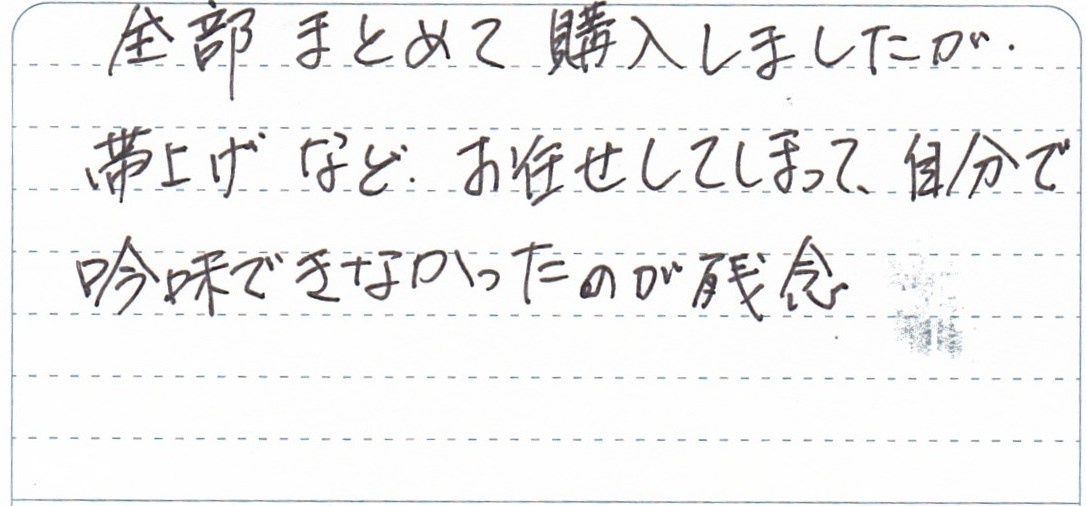 全部まとめて購入しましたが.
帯上げなど.お任せしてしまって、自分で
吟味できなかったのが残念